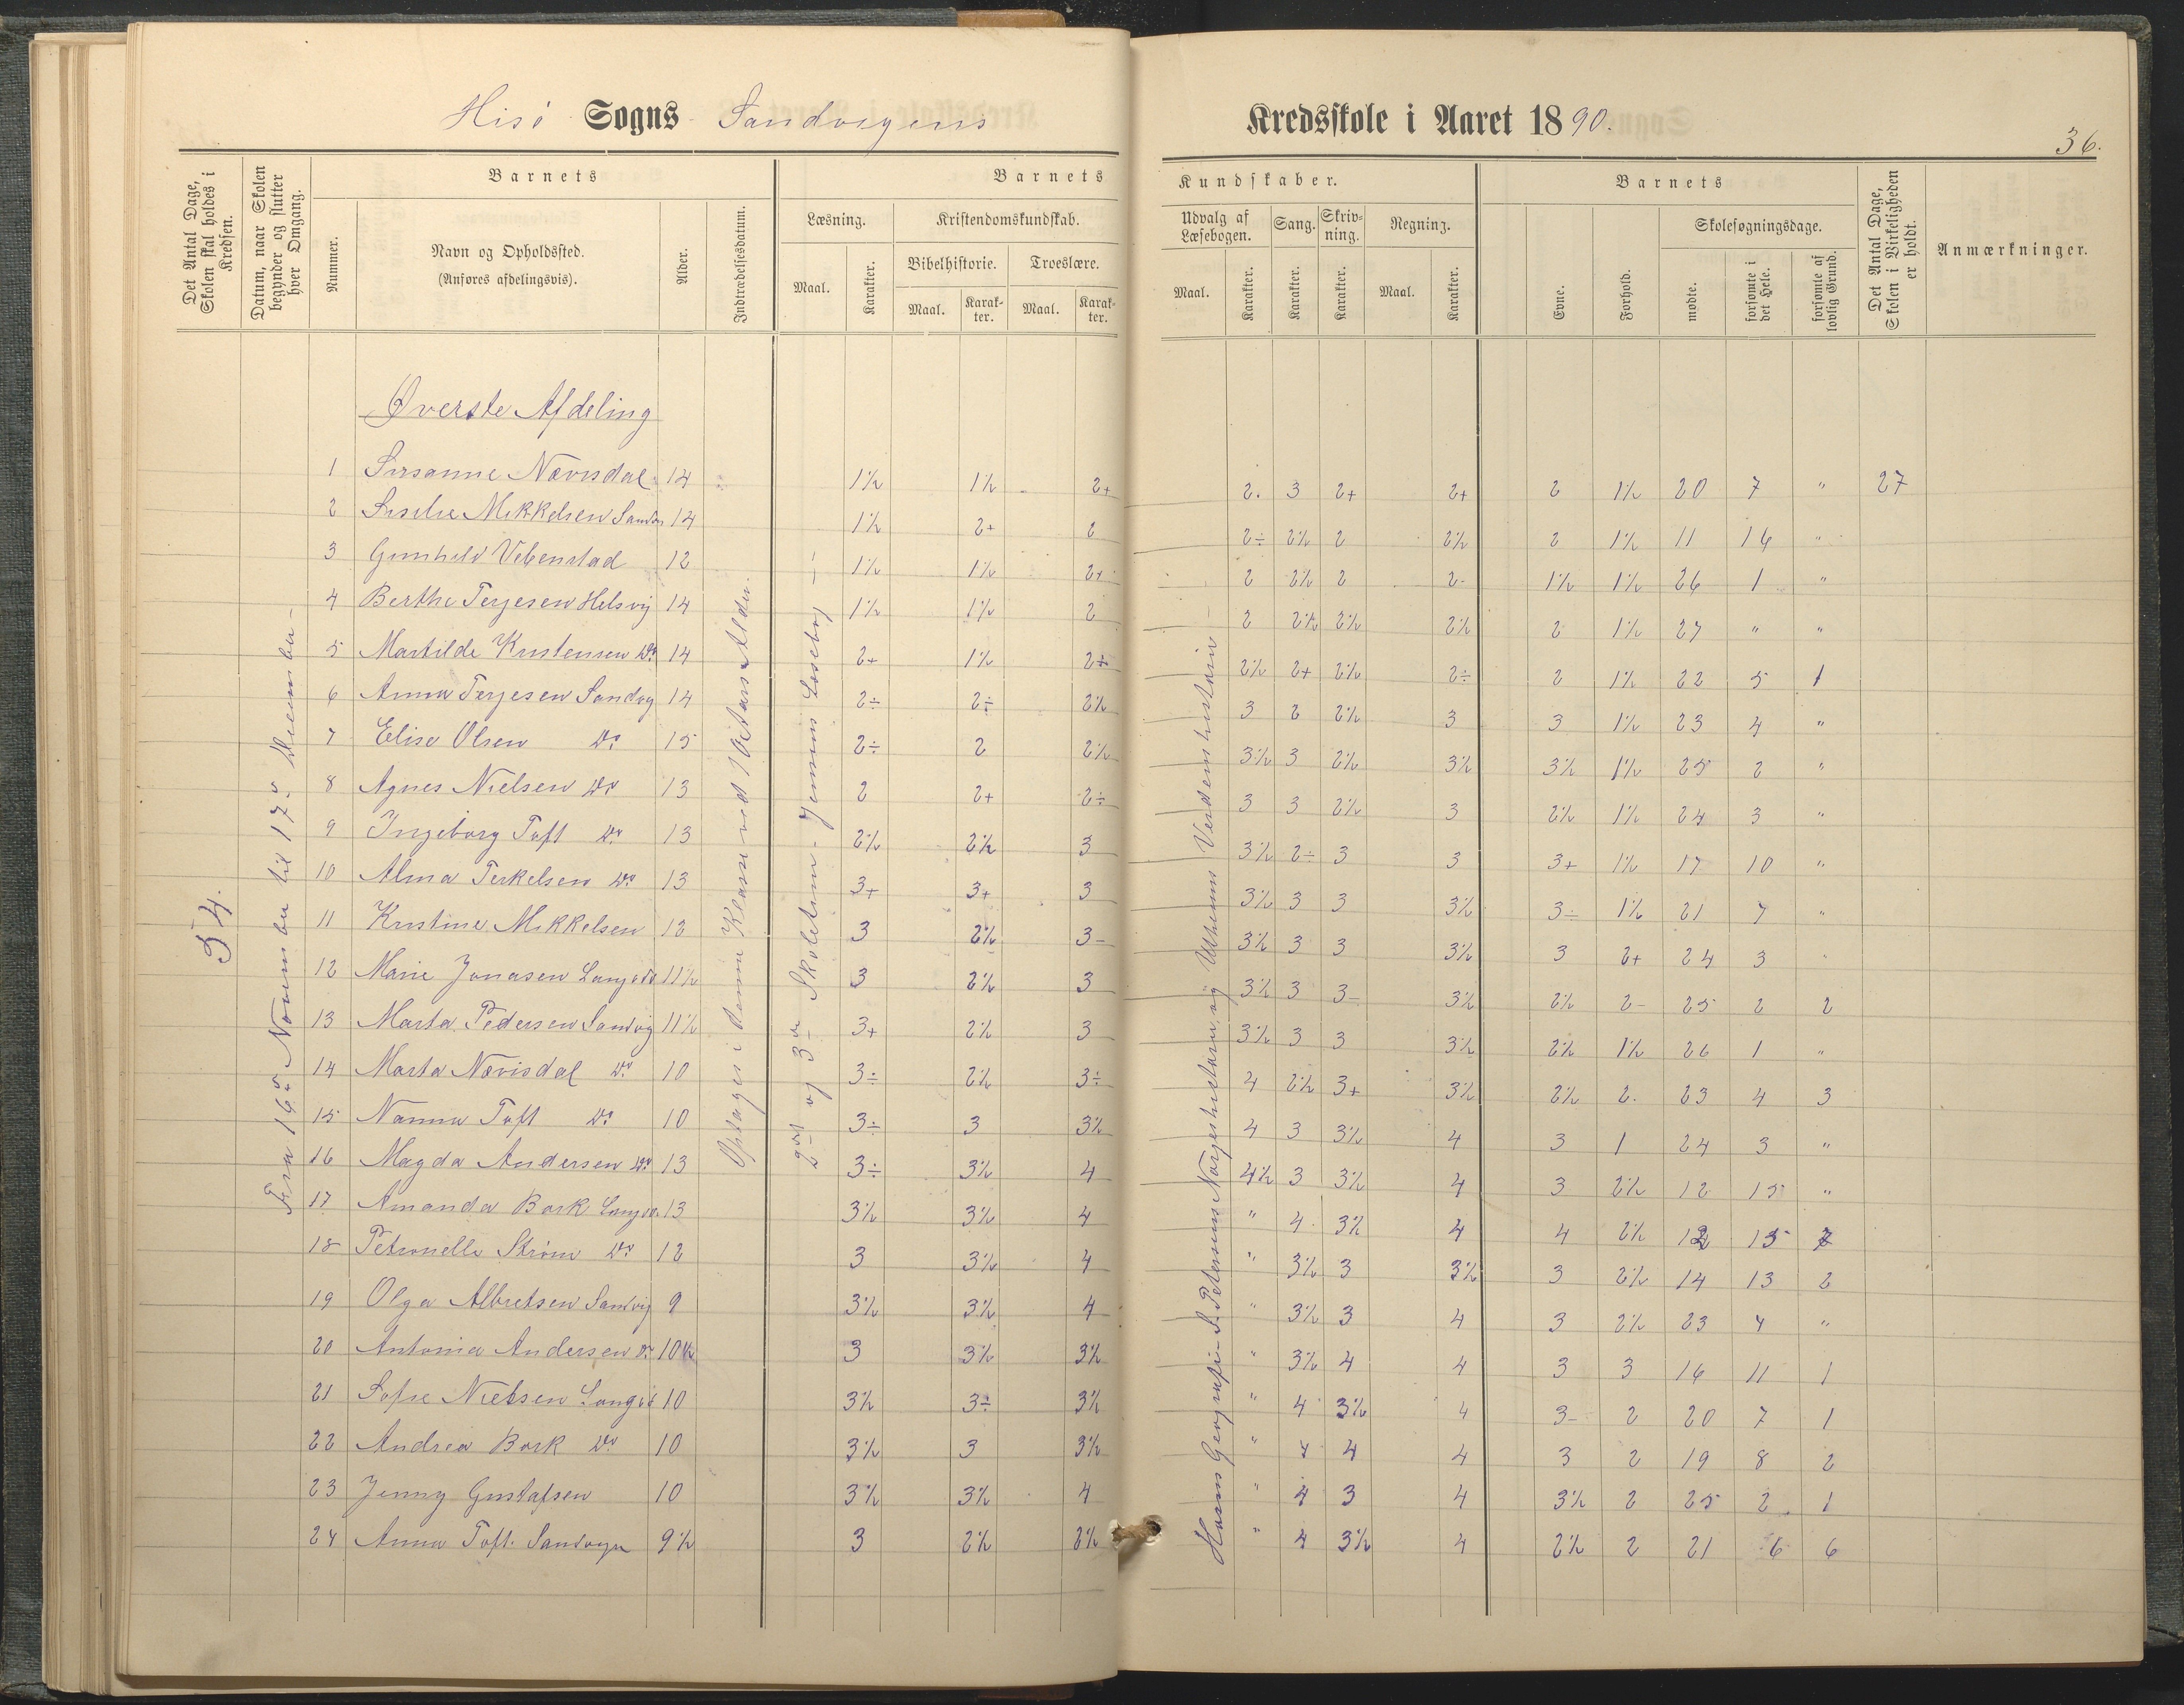 Hisø Sogns Sandvigens Kredsskole i Aaret 1890.
36.
Det Antal Dage, Skolen skal holdes i Kredsen.
Datum, naar Skolen begynder og slutter hver Omgang.
Barnets
Nummer.
Navn og Opholdssted.
(Anføres afdelingsvis).
Alder.
Indtrædelsesdatum.
Barnets Kundskaber.
Læsning.
Maal. Karakter.
Kristendomskundskab.
Bibelhistorie. Troeslære.
Maal. Karakter. Maal. Karakter.
Udvalg af Læsebogen.
Maal. Karakter.
Sang.
Karakter.
Skrivning.
Karakter.
Regning.
Maal. Karakter.
Barnets
Evne. Forhold.
Skolesøgningsdage.
mødte. forsømte i det Hele. forsømte af lovlig Grund.
Det Antal Dage, Skolen i Virkeligheden er holdt.
Anmærkninger.
54.
Fra 16de November til 17de December
Optages i denne Klasse ved 10 Aars Alder.
2det og 3die Skoletrin. Jensens Læsebog
Hoaas Geografi - S. Petersens Norgeshistorie og Verdenshistorie
Øverste Afdeling
1 Susanne Nævisdal 14 1½ 1½ 2+ 2. 3 2+ 2+ 2 1½ 20 7 " 27
2 Mikkelsen 14 1½ 2+ 2 2÷ 2½ 2 2½ 2 1½ 11 16 "
3 Gunhild Vebenstad 12 1½ 1½ 2+ 2 2½ 2 2- 1½ 1½ 26 1 "
4 Berthe Terjesen Helsvig 14 1½ 1½ 2 2 2½ 2½ 2½ 2 1½ 27 " "
5 Martilde Kristensen Do 14 2+ 1½ 2÷ 2½ 2+ 2½ 2÷ 2 1½ 22 5 1
6 Anna Terjesen Sandvg 14 2÷ 2÷ 2½ 3 2 2½ 3 3 1½ 23 4 "
7 Elise Olsen Do 15 2÷ 2 2½ 3½ 3 2½ 3½ 3½ 1½ 25 2 "
8 Agnes Nielsen Do 13 2 2+ 2÷ 3 3 2½ 3 2½ 1½ 24 3 "
9 Ingeborg Toft Do 13 2½ 2½ 3 3½ 2÷ 3 3 3+ 1½ 17 10 "
10 Alma Terkelsen Do 13 3+ 3+ 3 3½ 3 3 3½ 3÷ 1½ 21 7 "
11 Kristine Mikkelsen 13 3 2½ 3- 3½ 3 3 3½ 3 2+ 24 3 "
12 Marie Jonasen 11½ 3 2½ 3 3½ 3 3- 3½ 2½ 2- 25 2 2
13 Marta Pedersen Sandvig 11½ 3+ 2½ 3 3½ 3 3 3½ 2½ 1½ 26 1 "
14 Marta Nævisdal Do 10 3÷ 2½ 3÷ 4 2½ 3+ 3½ 2½ 2. 23 4 3
15 Nanna Toft Do 10 3÷ 3 3½ 4 3 3½ 4 3 1 24 3 "
16 Magda Andersen Do 13 3÷ 3½ 4 4½ 3 3½ 4 3 2½ 12 15 "
17 Amanda Bork 13 3½ 3½ 4 " 4 3½ 4 4 2½ 12 15 7
18 Petronelle Strøm Do 12 3 3½ 4 " 3½ 3 3½ 3 2½ 14 13 2
19 Olga Albretsen Sandvig 9 3½ 3½ 4 " 3½ 3 4 3 2½ 23 4 "
20 Antonia Andersen Do 10½ 3 3½ 3½ " 3½ 4 4 3 3 16 11 1
21 Sofie Nielsen 10 3½ 3÷ 3½ " 4 3½ 4 3- 2 20 7 1
22 Andrea Bork Do 10 3½ 3 3½ " 4 4 4 3 2 19 8 2
23 Jenny Gustafsen 10 3½ 3½ 4 " 4 3 4 3½ 2 25 2 1
24 Anna Toft. Sandvgn 9½ 3 2½ 2½ " 4 3½ 4 2½ 2 21 6 6